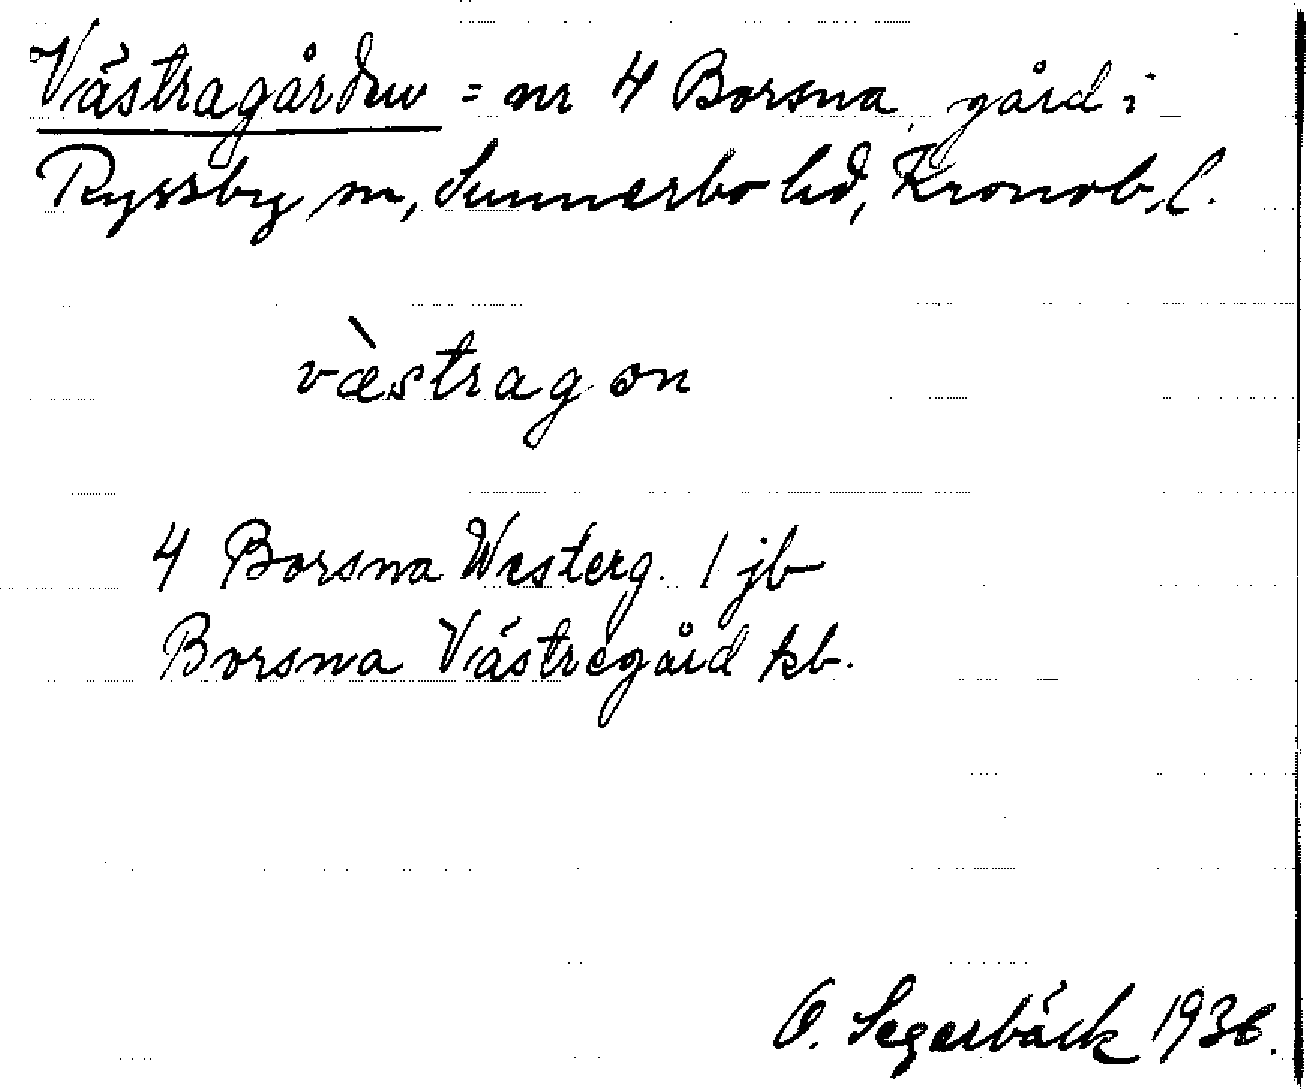 Västragården = nr 4 Borsna, gård i
Ryssby sn, Sunnerbo hd, Kronob. l.
væ̀stragon
4 Borsna Westerg. 1 jb
Borsna Västregård kb.
O. Segerbäck 1936.